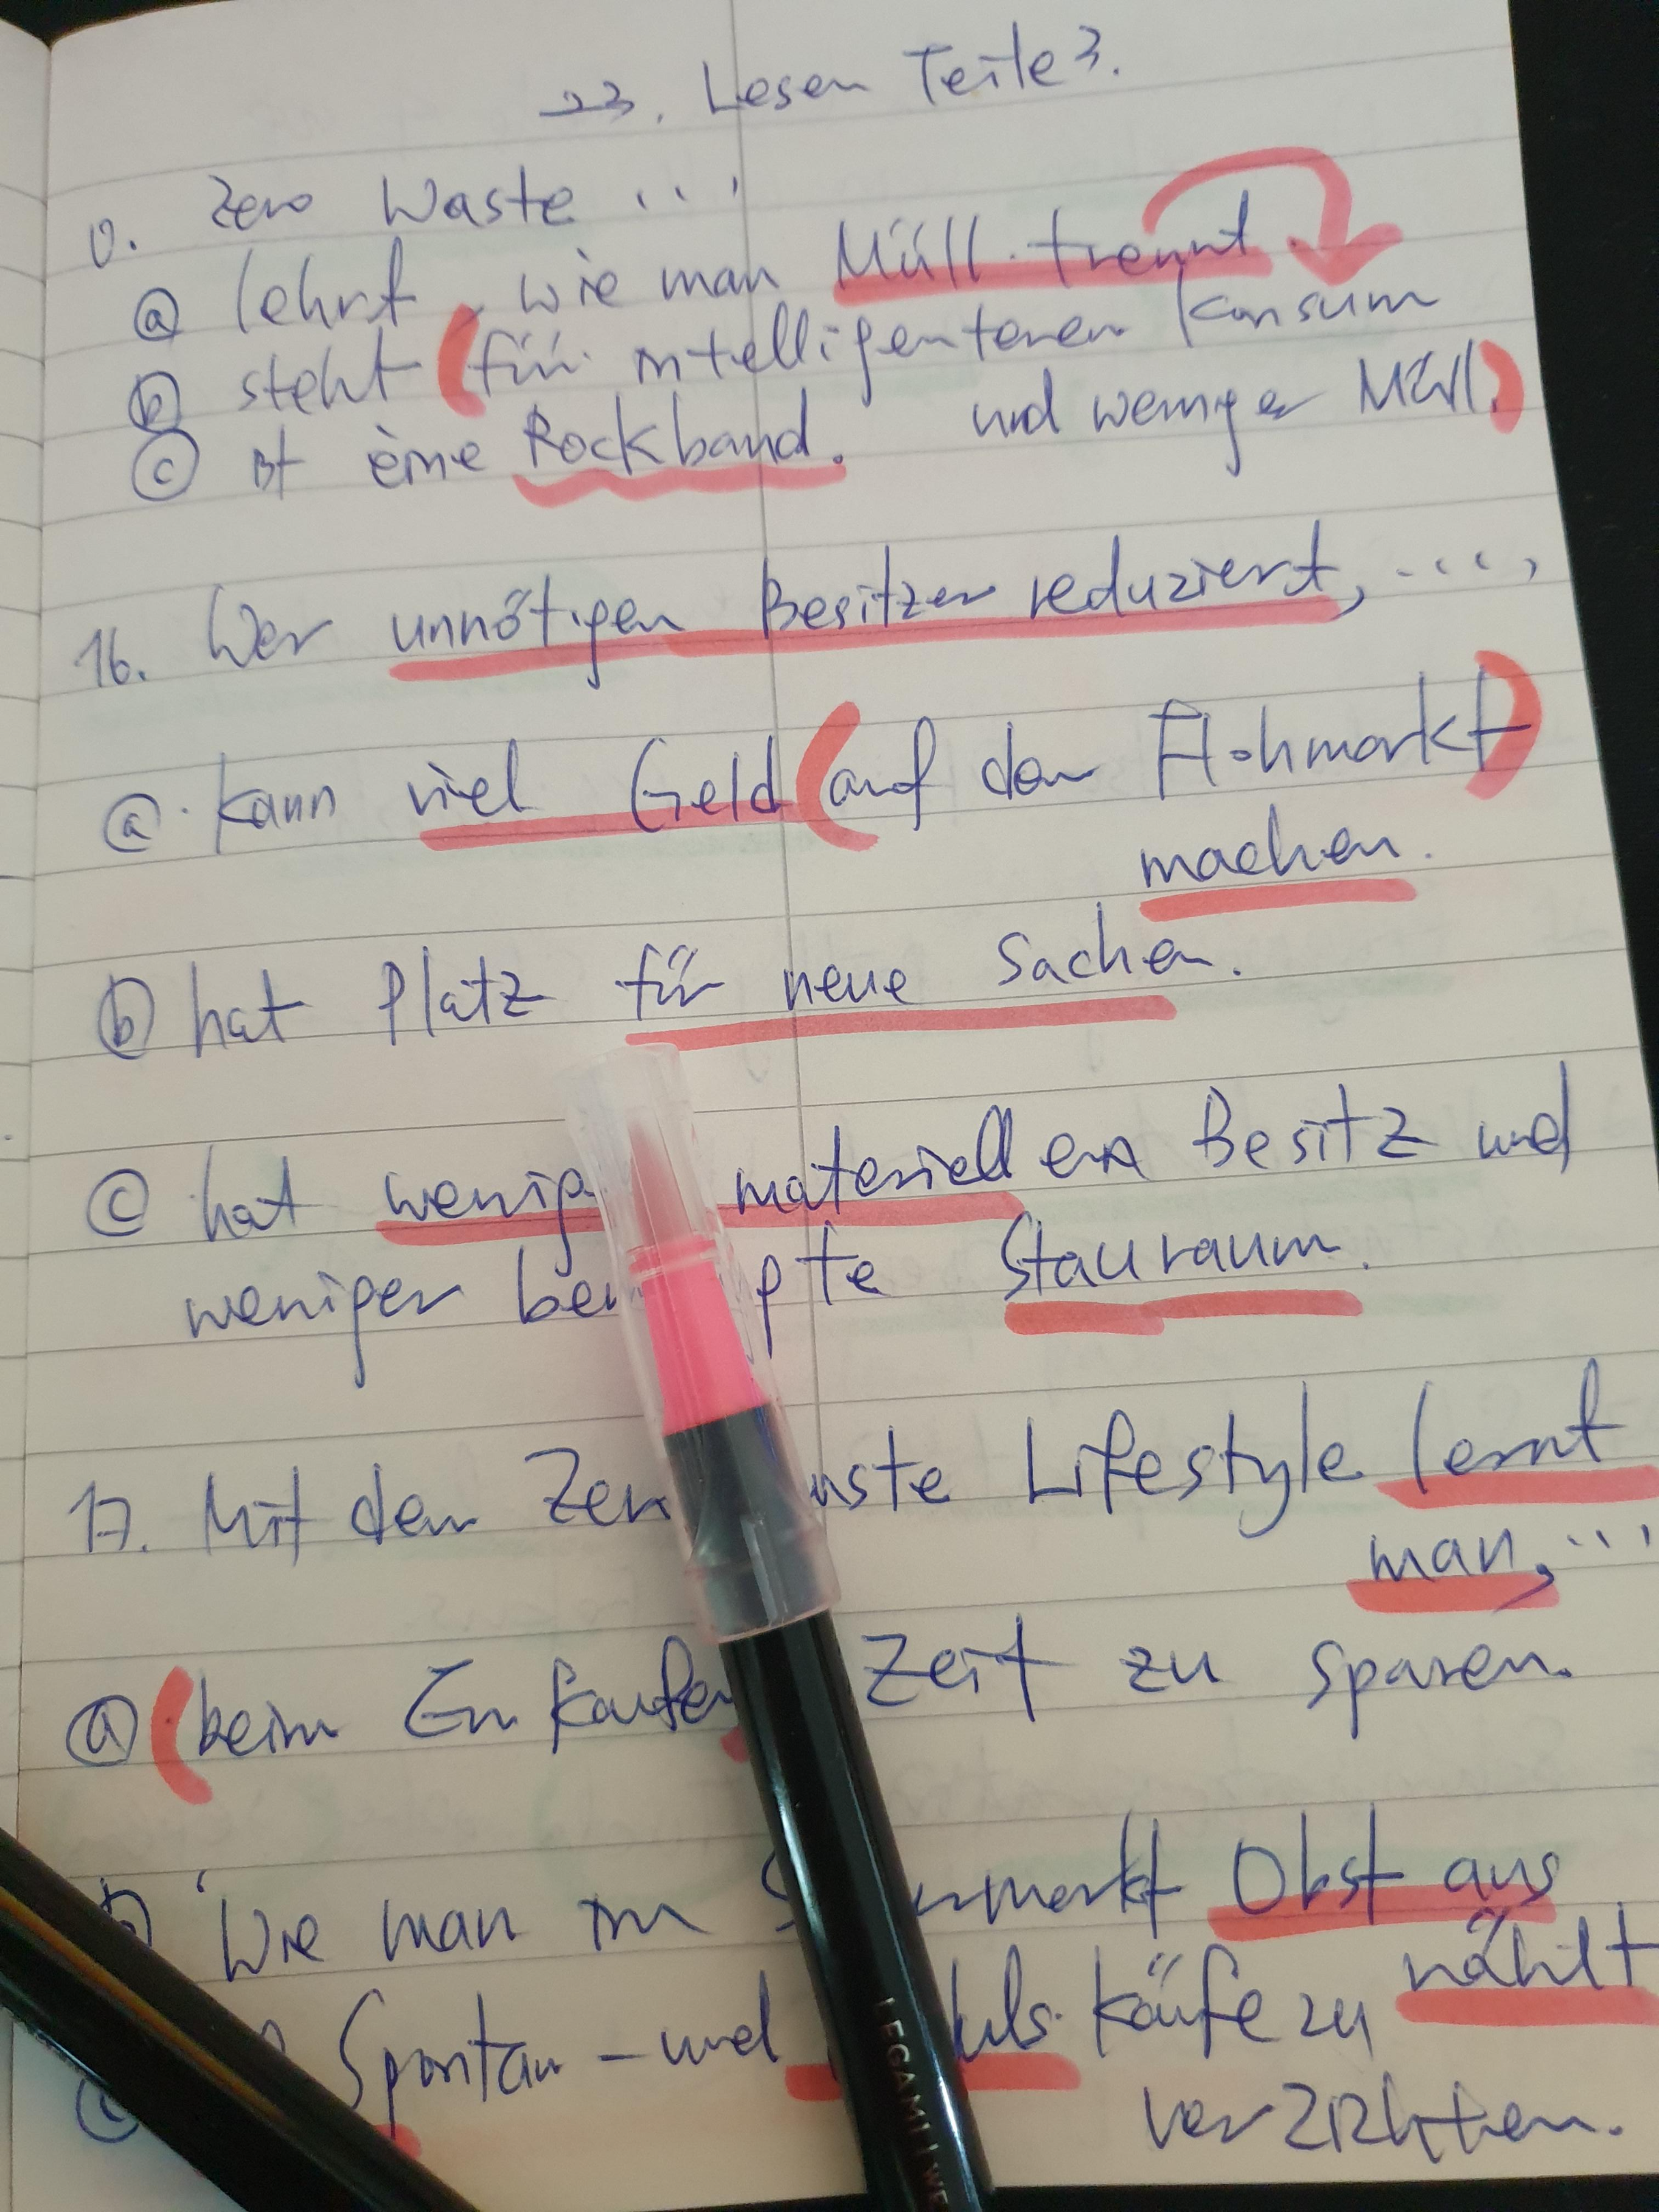 23. Lesen Teile 3.
0. Zero Waste ...
ⓐ lehrt, wie man Müll trennt.
ⓑ steht für intelligenteren Konsum
und weniger Müll.
ⓒ ist eine Rockband.
16. Wer unnötigen Besitzer reduziert, ....,
ⓐ kann viel Geld auf dem Flohmarkt
machen.
ⓑ hat Platz für neue Sachen.
ⓒ hat wenig materiellen Besitz und
weniger Stauraum.
17. Mit dem Lifestyle lernt
man, ...
ⓐ beim Einkaufen Zeit zu sparen.
ⓑ Wie man im Obst aus
wählt
ⓒ Spontan- und käufe zu
verzichten.
LEGAMI WE